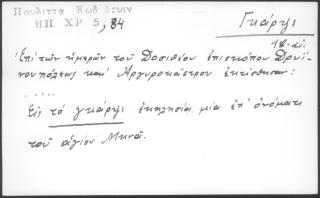 Πουλίτσα Κωδ Δρυϊν
ΗΠ ΧΡ 5, 84
Γκάρζι
18-αι.
Ἐπί τῶν ἡμερῶν τοῦ Δοσιθέου ἐπισκόπου Δρυϊ-
νουπόλεως καί Ἀργυροκάστρου ἐκτίσθησαν:
.....
Εἰς τό γκάρζι ἐκκλησία μία ἐπ' ὀνόματι
τοῦ ἁγίου Μηνᾶ.